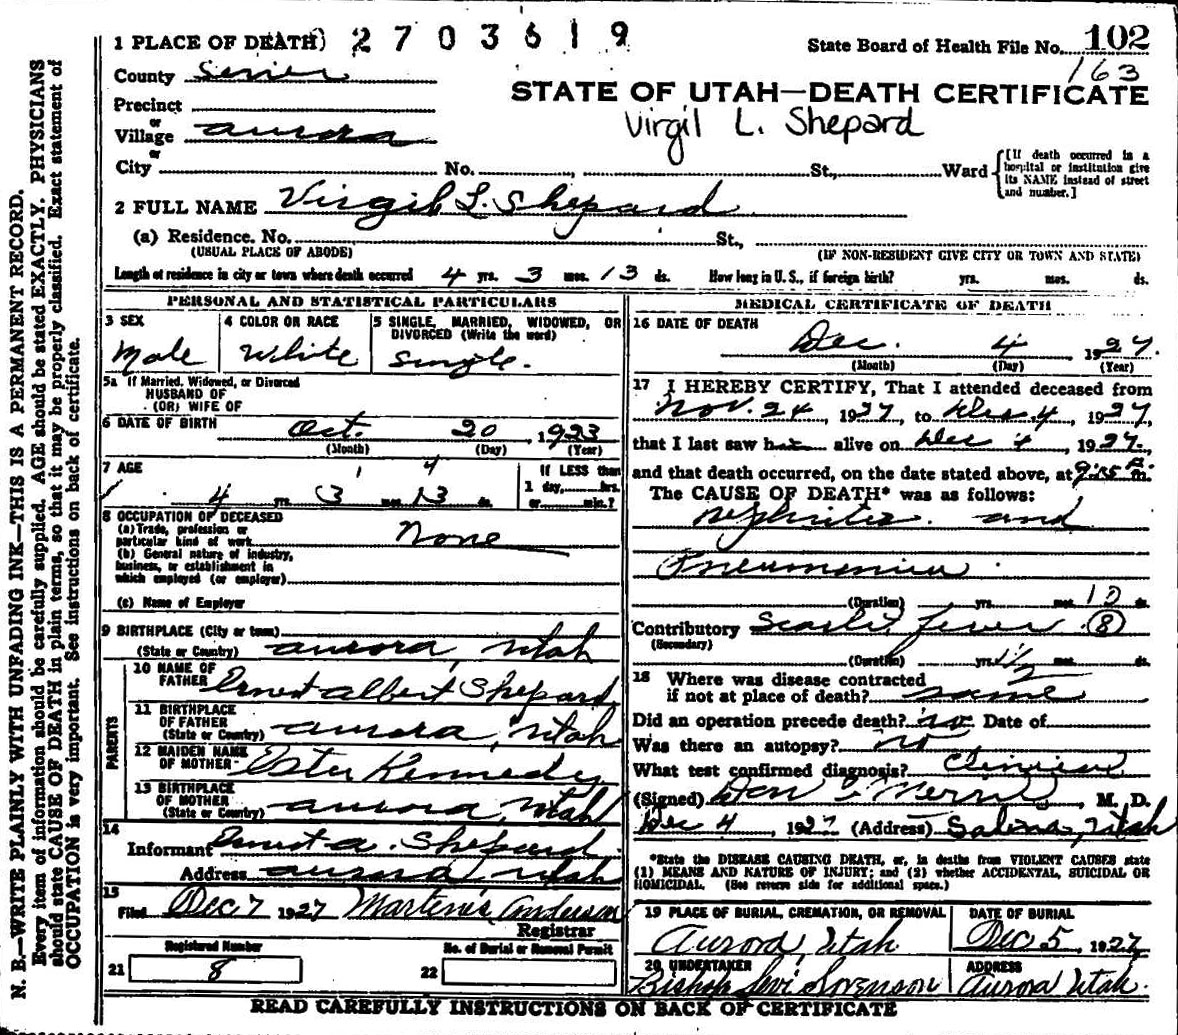 1 PLACE OF DEATH) 2 7 0 3 6 1 9 State Board of Health File No. 102
County Sevier 163
STATE OF UTAH—DEATH CERTIFICATE
Precinct
or
Village Aurora Virgil L. Shepard
or
City No. St., Ward [If death occurred in a hospital or institution give its NAME instead of street and number.]
2 FULL NAME Virgil L. Shepard
(a) Residence. No. St.,
(USUAL PLACE OF ABODE) (IF NON-RESIDENT GIVE CITY OR TOWN AND STATE)
Length of residence in city or town where death occurred 4 yrs. 3 mos. 13 ds. How long in U.S., if foreign birth? yrs. mos. ds.
PERSONAL AND STATISTICAL PARTICULARS
3 SEX 4 COLOR OR RACE 5 SINGLE, MARRIED, WIDOWED, OR DIVORCED (Write the word)
Male White Single.
5a If Married, Widowed, or Divorced
HUSBAND OF
(OR) WIFE OF
6 DATE OF BIRTH Oct. 20, 1923
(Month) (Day) (Year)
7 AGE 1 4 If LESS than
4 yrs. 3 mos. 13 ds. 1 day, hrs. or min.?
8 OCCUPATION OF DECEASED
(a) Trade, profession or particular kind of work None
(b) General nature of industry, business, or establishment in which employed (or employer)
(c) Name of Employer
9 BIRTHPLACE (City or town)
(State or Country) Aurora, Utah
PARENTS
10 NAME OF FATHER Ernest Albert Shepard
11 BIRTHPLACE OF FATHER (State or Country) Aurora, Utah
12 MAIDEN NAME OF MOTHER Ester Kennedy
13 BIRTHPLACE OF MOTHER (State or Country) Aurora, Utah
14
Informant Ernest A. Shepard.
Address Aurora, Utah
15
Filed Dec 7 1927 Martenis Anderson
Registrar
Registered Number No. of Burial or Removal Permit
21 8 22
MEDICAL CERTIFICATE OF DEATH
16 DATE OF DEATH
Dec. 4, 1927.
(Month) (Day) (Year)
17 I HEREBY CERTIFY, That I attended deceased from
Nov. 24, 1927, to Dec 4, 1927,
that I last saw h alive on Dec 4, 1927,
and that death occurred, on the date stated above, at m.
The CAUSE OF DEATH* was as follows:
Nephritis and
Pneumonia.
(Duration) yrs. mos. 10 ds.
Contributory Scarlet fever (8)
(Secondary)
(Duration) yrs. 1 1/2 mos. ds.
18 Where was disease contracted
if not at place of death? same
Did an operation precede death? no Date of
Was there an autopsy? no
What test confirmed diagnosis? Clinical
(Signed) Don C Merrill, M. D.
Dec 4, 1927 (Address) Salina, Utah
*State the DISEASE CAUSING DEATH, or, in deaths from VIOLENT CAUSES state
(1) MEANS AND NATURE OF INJURY; and (2) whether ACCIDENTAL, SUICIDAL OR
HOMICIDAL. (See reverse side for additional space.)
19 PLACE OF BURIAL, CREMATION, OR REMOVAL DATE OF BURIAL
Aurora, Utah Dec 5, 1927
20 UNDERTAKER ADDRESS
Bishop Levi Sorenson Aurora Utah.
READ CAREFULLY INSTRUCTIONS ON BACK OF CERTIFICATE
N. B.—WRITE PLAINLY WITH UNFADING INK—THIS IS A PERMANENT RECORD.
Every item of information should be carefully supplied. AGE should be stated EXACTLY. PHYSICIANS
should state CAUSE OF DEATH in plain terms, so that it may be properly classified. Exact statement of
OCCUPATION is very important. See instructions on back of certificate.